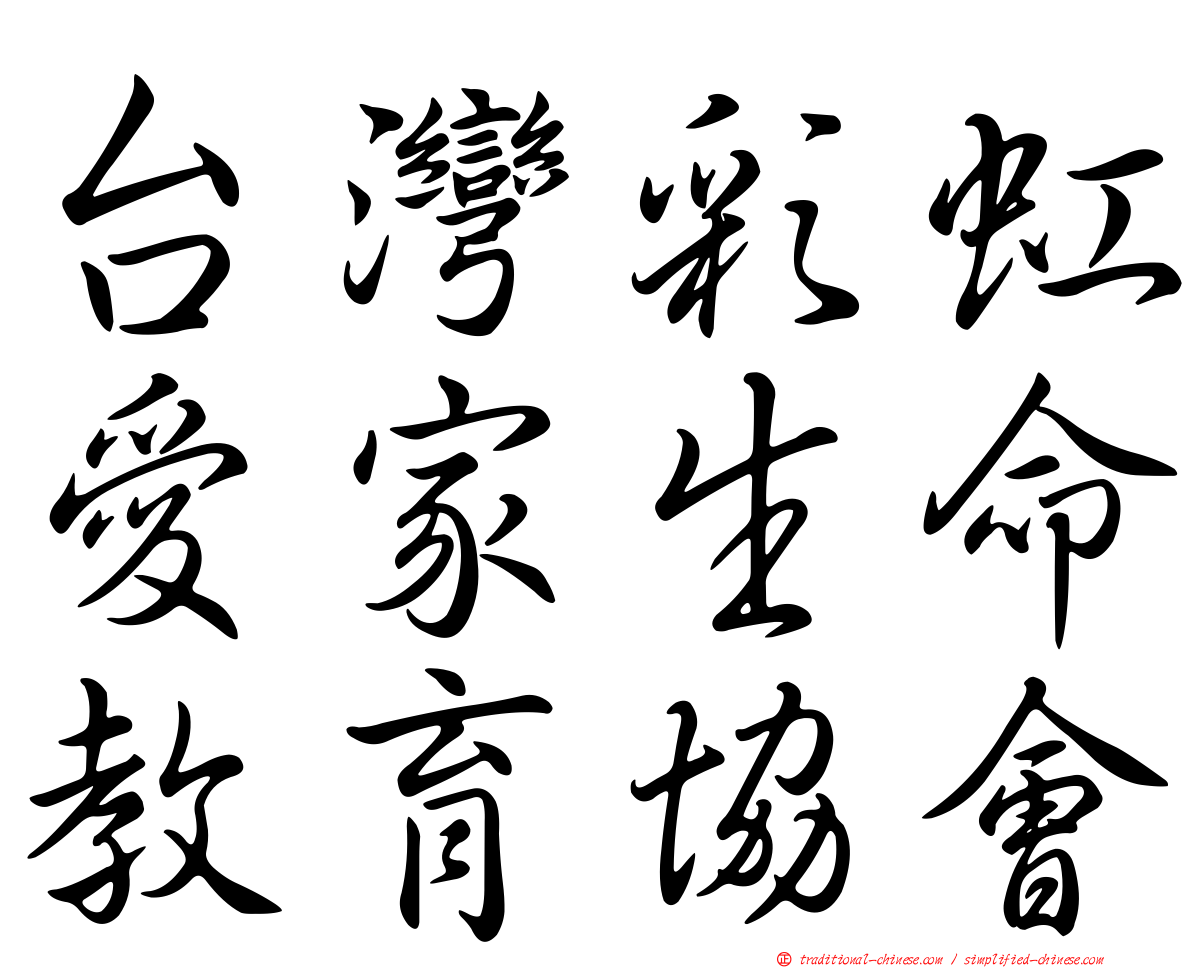 台灣彩虹
愛家生命
教育協會
正 traditional-chinese.com / simplified-chinese.com